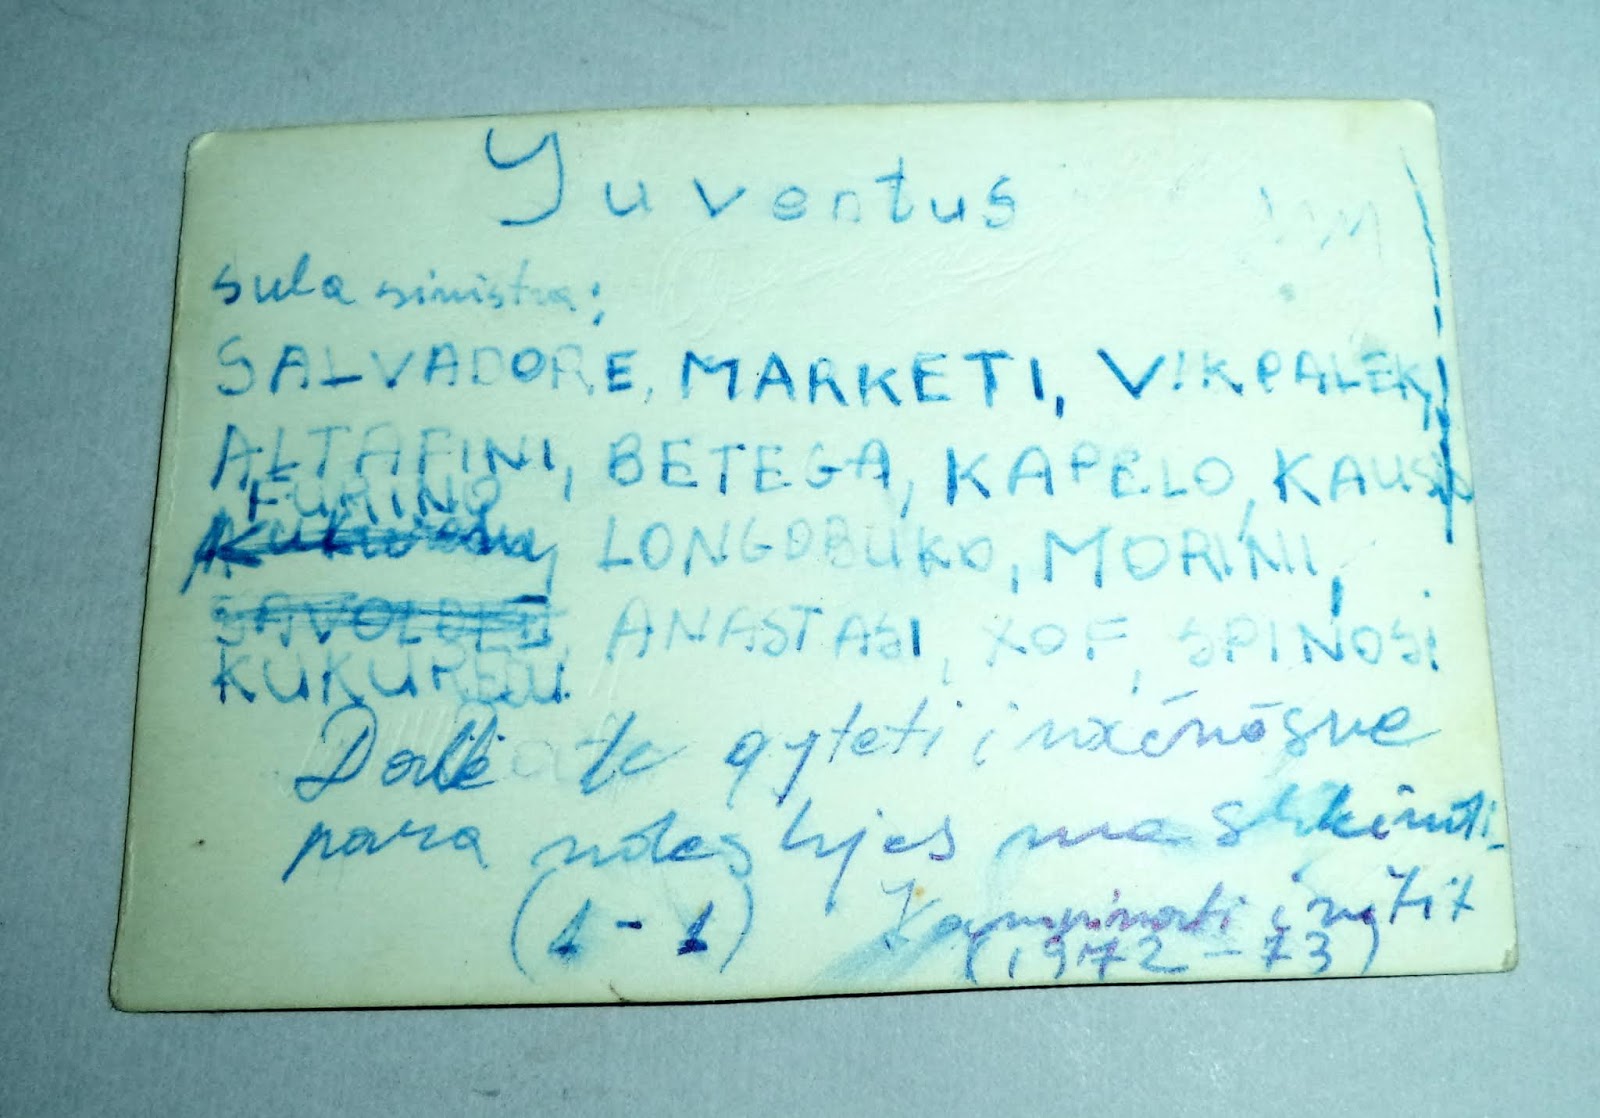 Yuventus
sula sinistra;
SALVADORE, MARKETI, VIKPALEK,
ALTAFINI, BETEGA, KAPELO, KAUSIO
FURINO
LONGOBUKO, MORINI,
SAVOLDI ANASTASI, XOF, SPINOSI
KUKUREDU
Doli te qyteti i
para ndeshjes me
(1-1) Kampionati i
(1972-73)